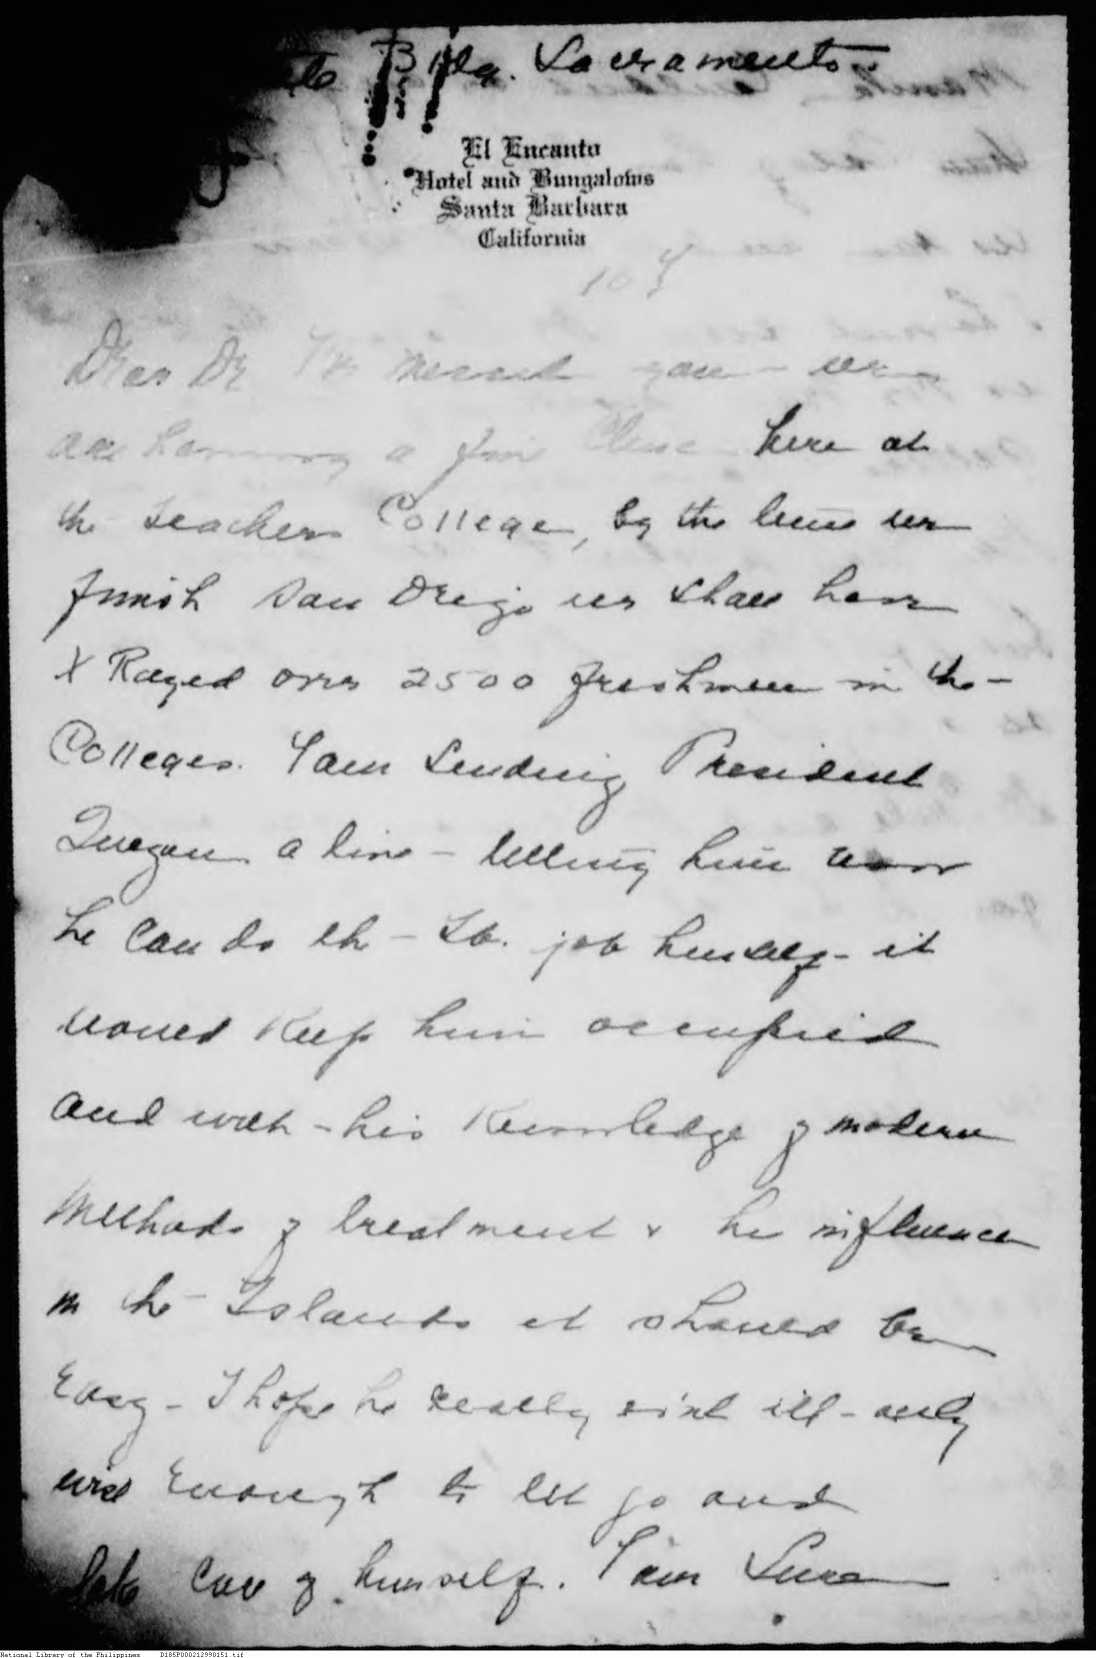 Bldg. Sacramento.
El Encanto
Hotel and Bungalows
Santa Barbara
California
Dear Dr
are having a fine here at
the Teachers College, by the time we
finish San Diego we shall have
X Rayed over 2500 freshmen in the
Colleges. I am sending President
Quezon a line – telling him
he can do the – Tb. job himself – it
would keep him occupied
and with – his Knowledge of modern
Methods of treatment & his influence
in the – Islands it should be
Easy – I hope he really isn't ill – only
wise Enough to let go and
take care of himself. I am Sure
National Library of the Philippines D185P000212990151.tif